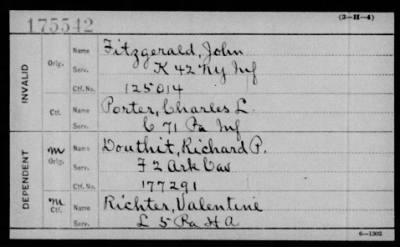 175542
(3—H—4)
INVALID
Orig.
Name Fitzgerald, John
Serv. K 42 Ny Inf
Ctf. No. 125014
Ctf.
Name Porter, Charles L.
Serv. C 71 Pa Inf
DEPENDENT
M
Orig.
Name Douthit, Richard P.
Serv. F 2 Ark Cav
Ctf. No. 177291
M
Ctf.
Name Richter, Valentine
Serv. L 5 Pa H A
6—1302